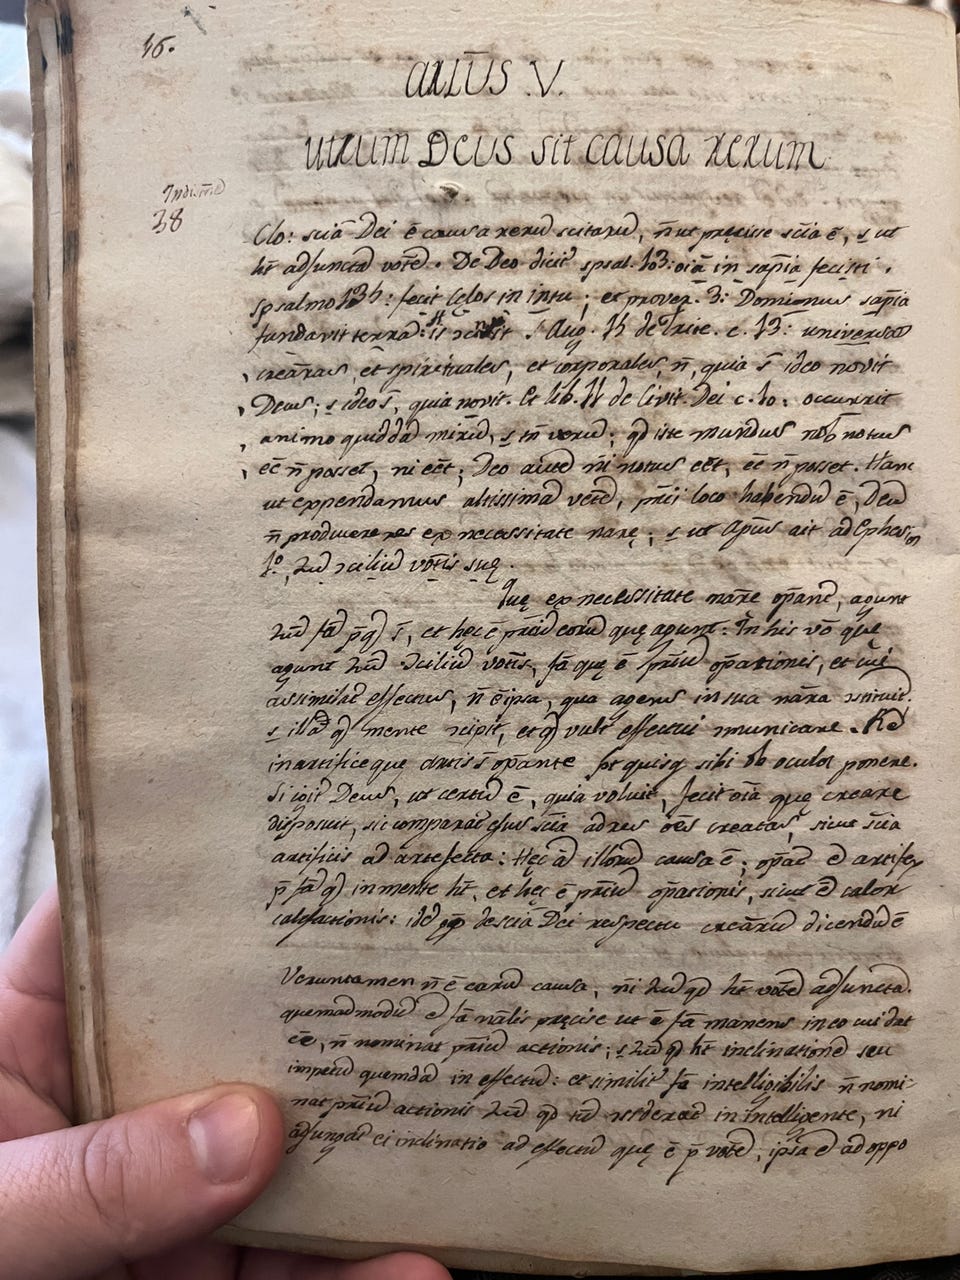 16.
aultūs V.
utrum Deus sit causa rerum
38
Clo: sciā Dei ē causa rerū scitarū, n̄ ut pręcise sciā ē, s ut
ht̄ adjunctā votē. De Deo dicit spsal. 103: oiā in sapiā fecisti.
spsalmo 135: fecit Celos in intu; et prover. 3: Dominus sapiā
fundavit terrā: S. Aug. 15 de Trite. c. 13: universas
creāras, et spirituales, et corporales, n̄, quia s̄ ideo novit
Deus; s ideo s̄, quia novit. Et lib. 11 de Civit. Dei c. 10: occurrit
animo quiddā mirū, s tn̄ verū; qd iste mundus nob̄ notus
eē n̄ posset, ni eēt; Deo autē ni notus eēt, eē n̄ posset. Hanc
ut expendamus altissimā vētē, prīi loco habendū ē, Deū
n̄ producere res ex necessitate narę; s ut Apūs ait ad Ephesios
1º, 2ū ɔciliū vōtis suę.
Quę ex necessitate nāre opānt, agunt
2ū fā p̄ q̄ s̄, et hęc ē prīū eorū quę agunt: In his vō quę
agunt 2ū ɔciliū vōtis, fā quę ē prīū opātionis, et cui
assimilāt effectus, n̄ ē ipsa, qua agens in sua nāra ɔstituit.
s illa q̄ mente ɔcipit, et q̄ vult effectui ɔmunicare. Hēd
in artifice quę artis s̄ opānte pōt quisq sibi ob oculos ponere.
Si igit Deus, ut certū ē, quia voluit, fecit oiā quę creare
disposuit, sic comparāt ejus sciā ad res oēs creatas, sicut sciā
artificis ad artefacta: Hęc āt illorū causa ē; opāt ē artifex
p̄ fā q̄ in mente ht̄, et hęc ē prīū opātionis, sicut ē calor
calefactionis: idē de sciā Dei respectu creārū dicendū ē
Veruntamen n̄ ē earū causa, ni 2ū qd ht̄ votē adjunctā.
quemadmodū ē fā nālis pręcise ut ē fā manens in eo cui dat
eē, n̄ nominat prīū actionis; s 2ū q̄ ht̄ inclinationē seu
impetū quemdā in effectū: et similit fā intelligibilis n̄ nomi-
nat prīū actionis 2ū qd tū ɔsiderat in intelligente, ni
adjungat ei inclinatio ad effectū quę ē p̄ votē, ipsa ē ad oppo